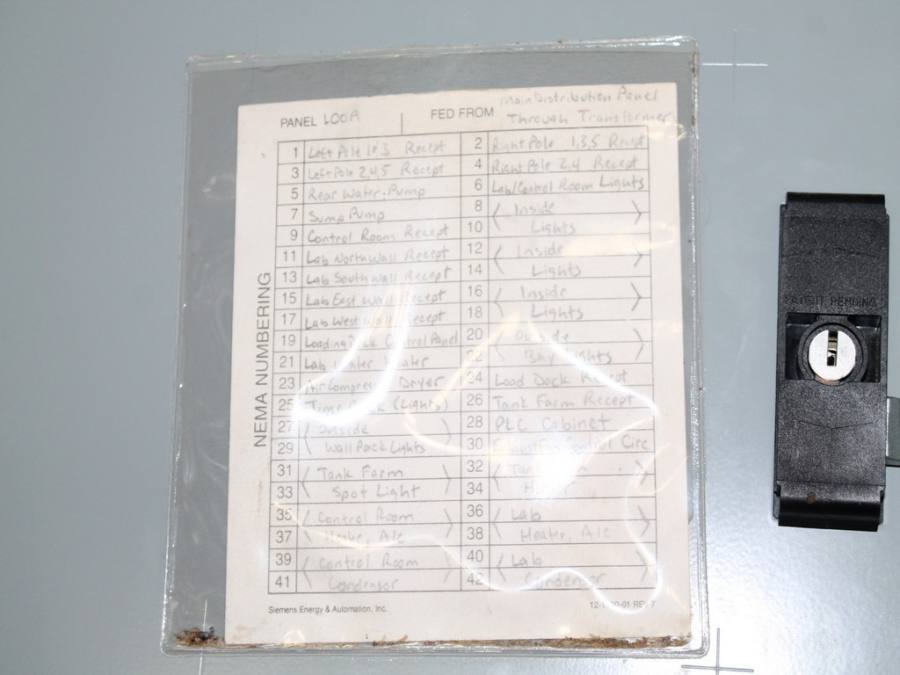 PANEL LOOA FED FROM Main Distribution Panel
Through Transformer
NEMA NUMBERING
1 Left Pole 1&3 Recept 2 Right Pole 1,3,5 Recept
3 Left Pole 2,4,5 Recept 4 Right Pole 2,4 Recept
5 Rear Water Pump 6 Lab/Control Room Lights
7 Sump Pump 8 Inside
9 Control Room Recept 10 Lights
11 Lab North Wall Recept 12 Inside
13 Lab South Wall Recept 14 Lights
15 Lab East Wall Recept 16 Inside
17 Lab West Wall Recept 18 Lights
19 Loading Dock Control Panel 20 Outside
21 Lab Water 22 Bay Lights
23 Air Compressor Dryer 24 Load Dock Recept
25 Time Clock (Lights) 26 Tank Farm Recept
27 Outside 28 PLC Cabinet
29 Wall Pack Lights 30 Control Circ
31 Tank Farm 32 Tank
33 Spot Light 34
35 Control Room 36 Lab
37 Heater, A/c 38 Heater, A/c
39 Control Room 40 Lab
41 Condensor 42 Condensor
Siemens Energy & Automation, Inc.
PATENT PENDING